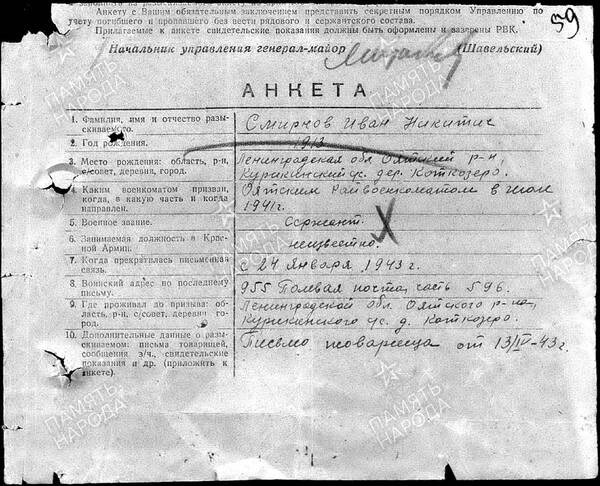 Анкету с Вашим обязательным заключением представить секретным порядком Управлению по
учету погибшего и пропавшего без вести рядового и сержантского состава.
Прилагаемые к анкете свидетельские показания должны быть оформлены и заверены РВК.
59
Начальник управления генерал-майор (Шавельский)
АНКЕТА
1. Фамилия, имя и отчество разыскиваемого. Смирнов Иван Никитич
2. Год рождения. 1913
3. Место рождения: область, р-н, Ленинградская обл Оятский р-н,
с/совет, деревня, город. Курикинский с/с. дер. Коткозеро.
4. Каким военкоматом призван, Оятским Райвоенкоматом в июле
когда, в какую часть и когда 1941г.
направлен.
5. Военное звание. Сержант.
6. Занимаемая должность в Крас- неизвестно.
ной Армии.
7. Когда прекратилась письменная с 24 Января 1943 г.
связь.
8. Воинский адрес по последнему 955 Полевая почта, часть 596.
письму.
9. Где проживал до призыва: об- Ленинградской обл. Оятского р-на,
ласть, р-н, с/совет, деревня, го- Курикинского с/с. д. Коткозеро.
род.
10. Дополнительные данные о разы- Письмо товарища от 13/IV-43г.
скиваемом: письма товарищей,
сообщения з/ч., свидетельские
показания и др. (приложить к
анкете).
ПАМЯТЬ НАРОДА